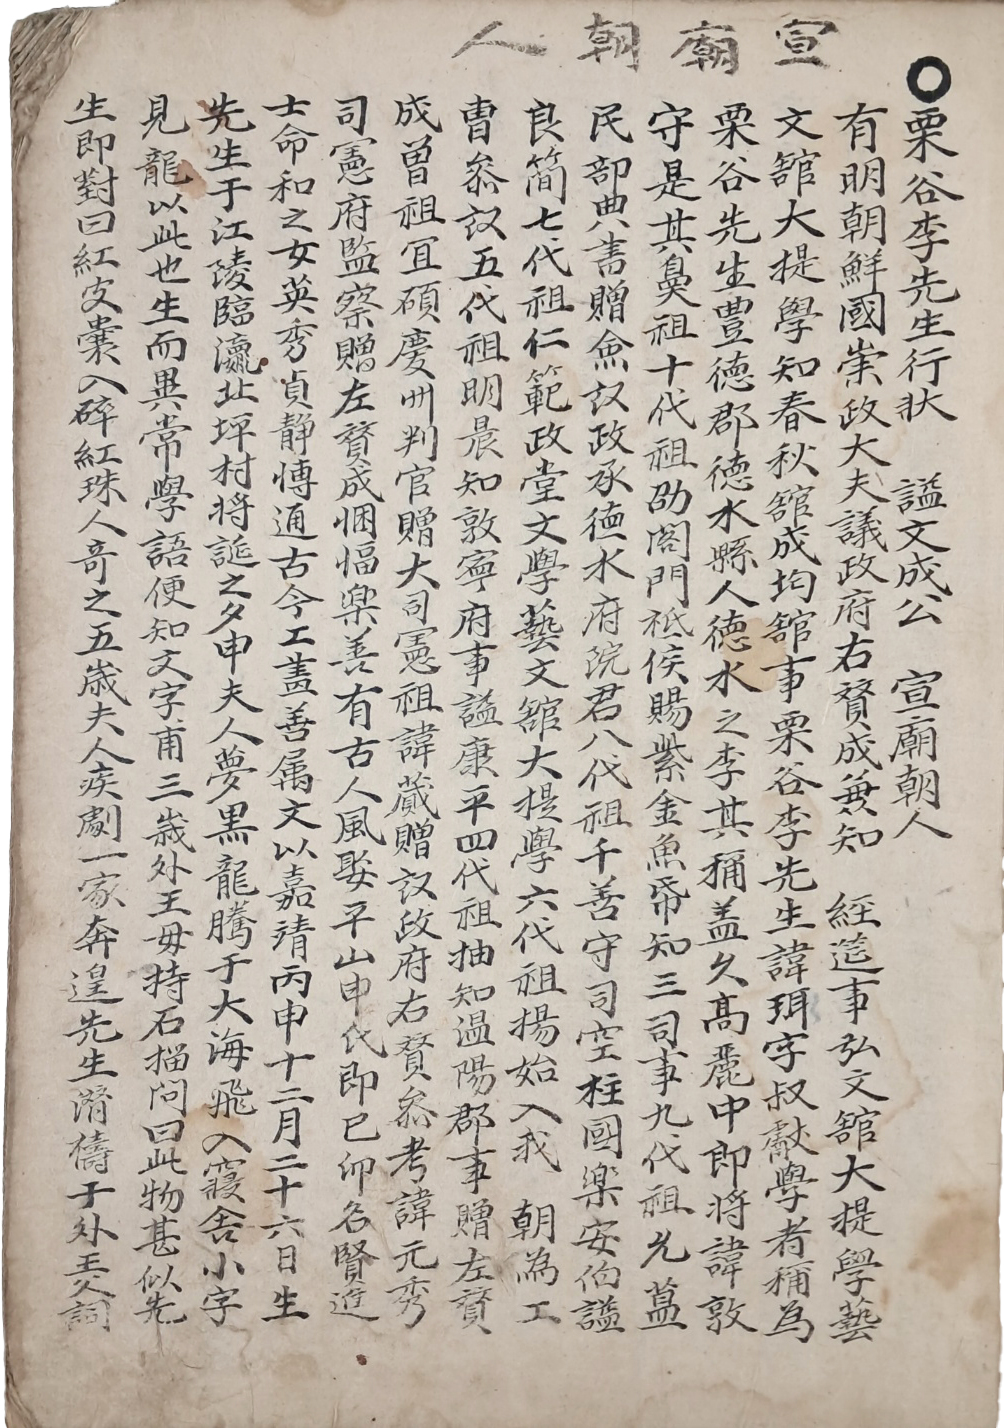 宣廟朝人
栗谷李先生行狀 謚文成公 宣廟朝人
有明朝鮮國崇政大夫議政府右贊成兼知 經筵事弘文舘大提學藝
文舘大提學知春秋舘成均舘事栗谷李先生諱珥字叔獻學者稱為
栗谷先生豊德郡德水縣人德水之李其稱盖久高麗中郎將諱敦
守是其鼻祖十代祖劭閤門祗侯賜紫金魚帒知三司事九代祖允蒀
民部典書贈僉議政承德水府院君八代祖千善守司空柱國樂安伯謚
良簡七代祖仁範政堂文學藝文舘大提學六代祖揚始入我 朝為工
曺叅議五代祖明晨知敦寧府事謚康平四代祖抽知温陽郡事贈左贊
成曽祖冝碩慶州判官贈大司憲祖諱蕆贈議政府右贊叅考諱元秀
司憲府監察贈左贊成悃愊樂善有古人風娶平山申氏即己卯名賢進
士命和之女英秀貞静愽通古今工畫善属文以嘉靖丙申十二月二十六日生
先生于江陵臨瀛北坪村将誕之夕申夫人夢黒龍騰于大海飛入寢舍小字
見龍以此也生而異常學語便知文字甫三歲外王母持石榴问曰此物甚似先
生即對曰紅皮囊入碎紅珠人奇之五歲夫人疾劇一家奔遑先生潛禱于外王父祠